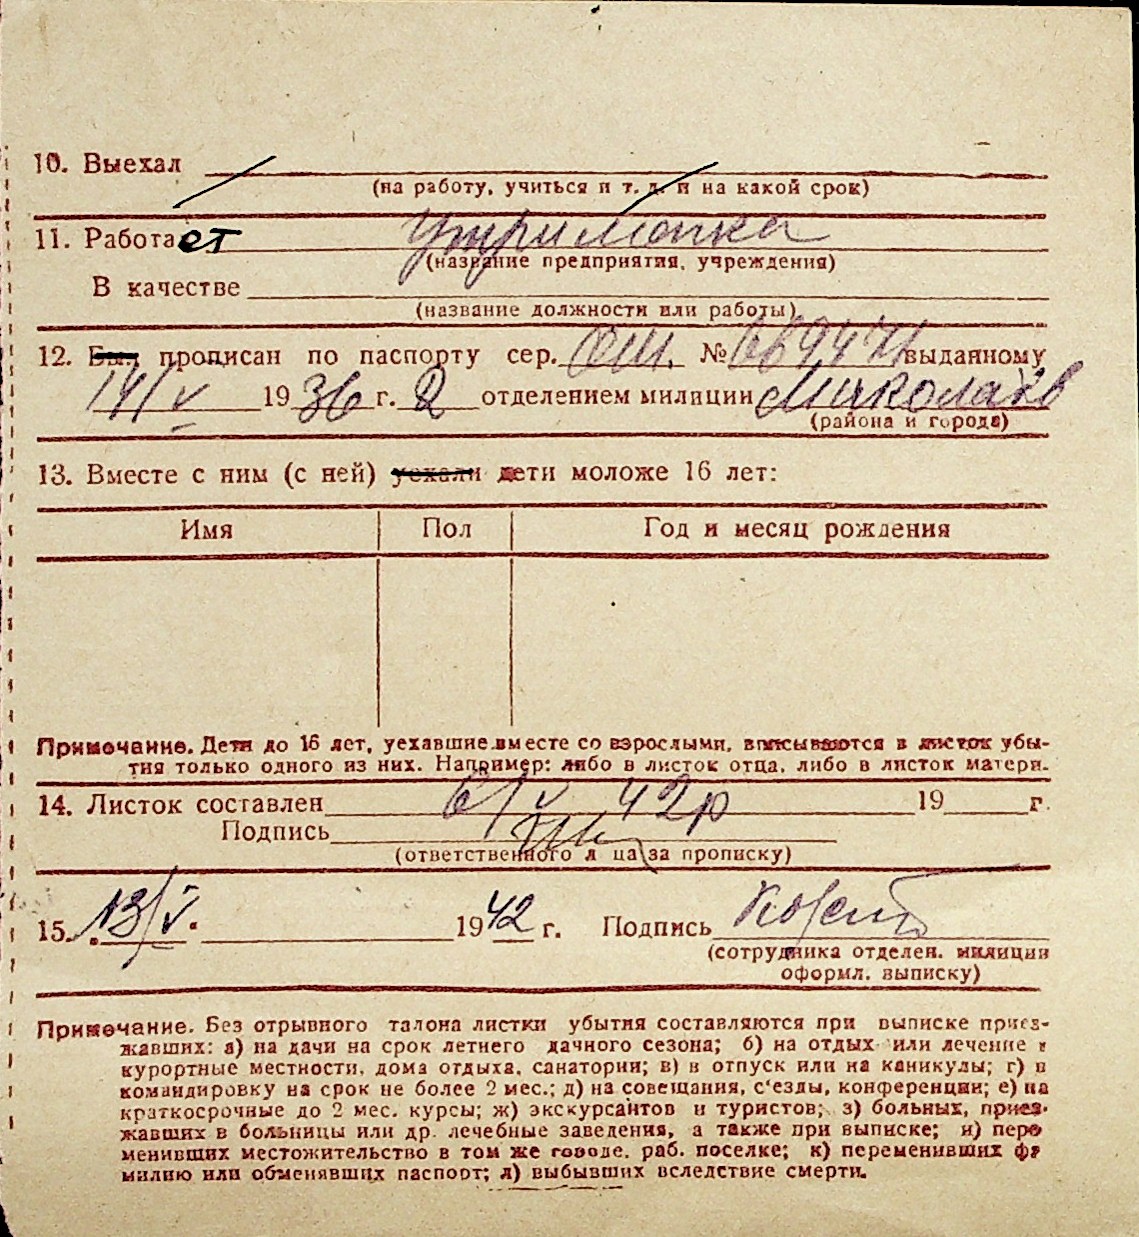 10. Выехал
(на работу, учиться и т. д. и на какой срок)
11. Работает Утриманка
(название предприятия, учреждения)
В качестве
(название должности или работы)
12. Был прописан по паспорту сер. ОШ. № 669471 выданному
14/V 1936 г. 2 отделением милиции Миколаїв
(района и города)
13. Вместе с ним (с ней) уехали дети моложе 16 лет:
Имя Пол Год и месяц рождения
Примечание. Дети до 16 лет, уехавшие вместе со взрослыми, вписываются в листок убы-
тия только одного из них. Например: либо в листок отца, либо в листок матери.
14. Листок составлен 6/V 42р 19 г.
Подпись
(ответственного л ца за прописку)
15. 13/V. 1942 г. Подпись
(сотрудника отделен. милиции
оформл. выписку)
Примечание. Без отрывного талона листки убытия составляются при выписке приез-
жавших: а) на дачи на срок летнего дачного сезона; б) на отдых или лечение в
курортные местности, дома отдыха, санатории; в) в отпуск или на каникулы; г) в
командировку на срок не более 2 мес.; д) на совещания, с'езды, конференции; е) на
краткосрочные до 2 мес. курсы; ж) экскурсантов и туристов; з) больных, приез-
жавших в больницы или др. лечебные заведения, а также при выписке; и) пере
менивших местожительство в том же городе, раб. поселке; к) переменивших фа
милию или обменявших паспорт; л) выбывших вследствие смерти.